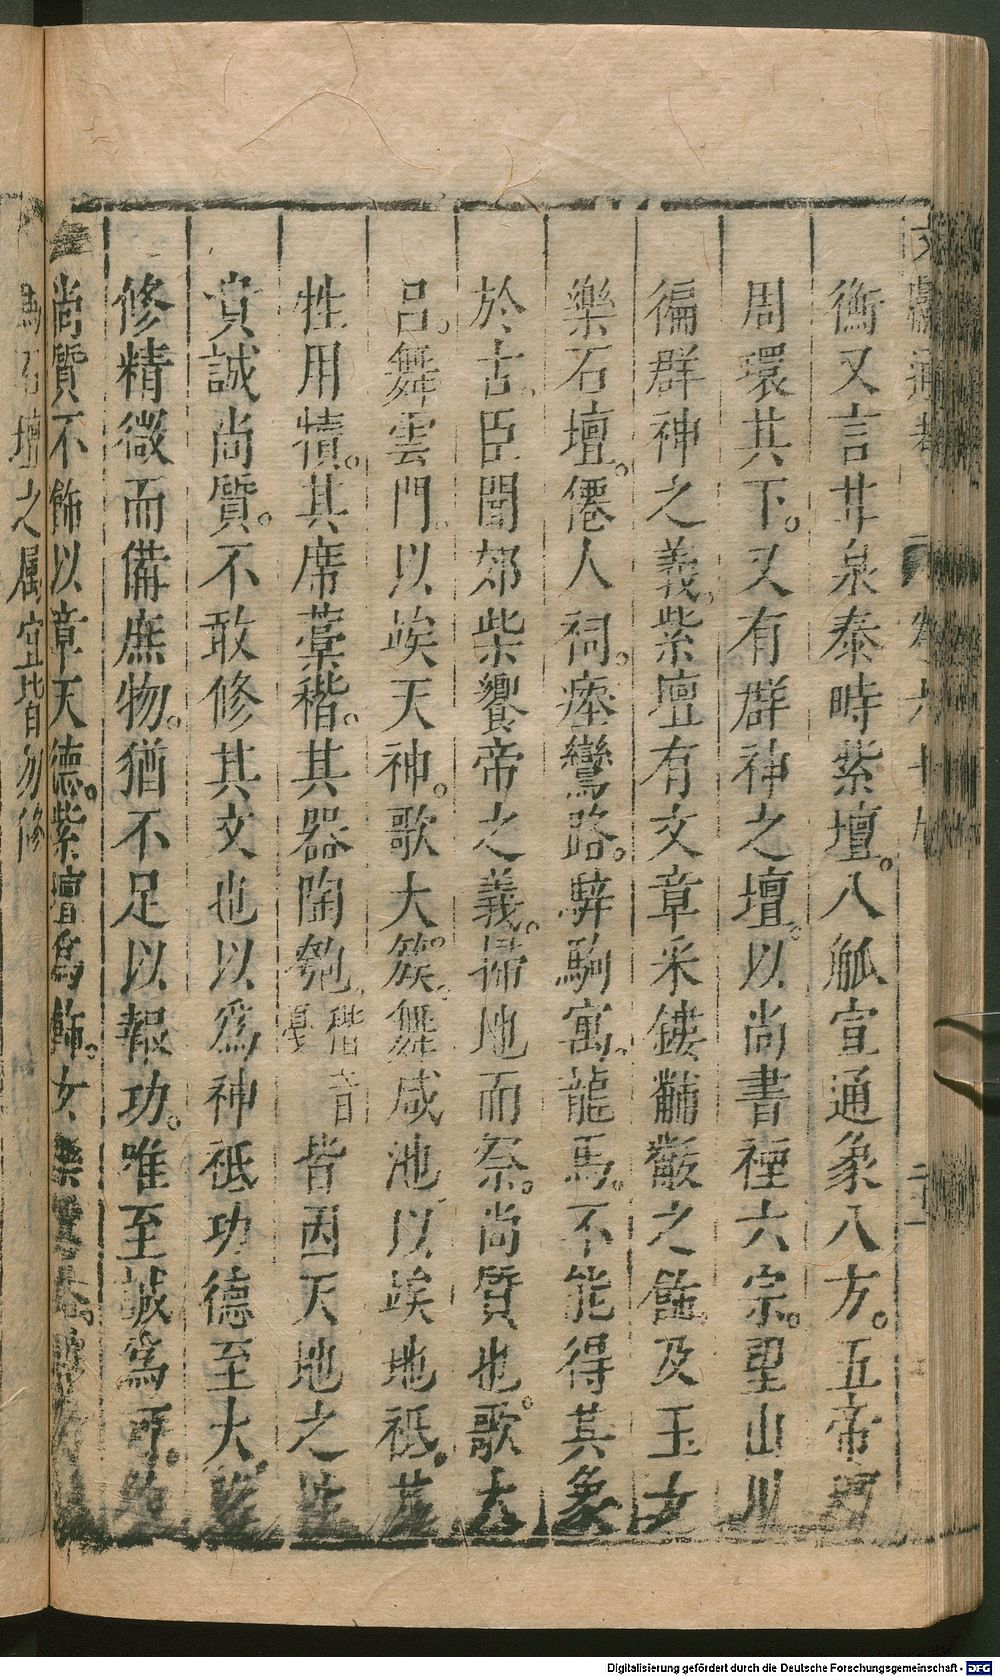 衡又言甘泉泰畤紫壇。八觚宣通象八方。五帝壇
周環其下。又有群神之壇。以尚書禋六宗。望山川
徧群神之義。紫壇有文章采鏤黼黻之飾。及玉女
樂石壇。僊人祠。瘞鸞路。騂駒寓。龍馬。不能得其象
於古。臣聞郊柴饗帝之義。掃地而祭。尚質也。歌大
呂。舞雲門。以竢天神。歌大簇。舞咸池以竢地祗。其
牲用犢。其席藁稭。其器陶匏。稭音戛皆因天地之性
貴誠尚質。不敢修其文也以爲神祗功德至大。雖
修精微而備庶物。猶不足以報功。唯至誠爲可。故
尚質不飾以章天德。紫壇爲飾。女樂
石壇之属宜皆勿修
文獻通考
卷六十九
二十一
Digitalisierung gefördert durch die Deutsche Forschungsgemeinschaft - DFG